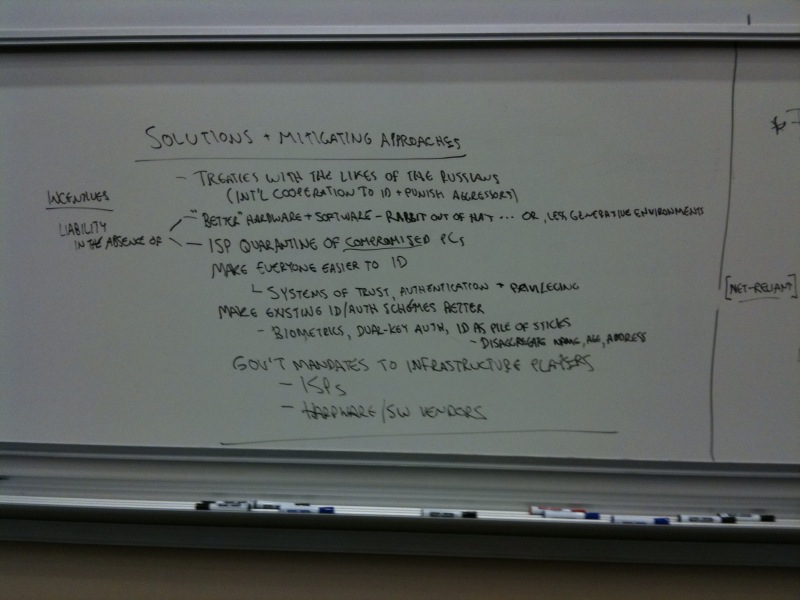 SOLUTIONS + MITIGATING APPROACHES
- TREATIES WITH THE LIKES OF THE RUSSIANS
(INT'L COOPERATION TO ID + PUNISH AGGRESSORS)
INCENTIVES
LIABILITY
IN THE ABSENCE OF
- "BETTER" HARDWARE + SOFTWARE - RABBIT OUT OF HAT ... OR, LESS GENERATIVE ENVIRONMENTS
- ISP QUARANTINE OF COMPROMISED PCs
MAKE EVERYONE EASIER TO ID
SYSTEMS OF TRUST, AUTHENTICATION + PRIVILEGING
MAKE EXISTING ID/AUTH SCHEMES BETTER
- BIOMETRICS, DUAL-KEY AUTH, ID AS PILE OF STICKS
- DISAGGREGATE NAME, AGE, ADDRESS
GOV'T MANDATES TO INFRASTRUCTURE PLAYERS
- ISPs
- HARDWARE/SW VENDORS
[NET-RELIANT]